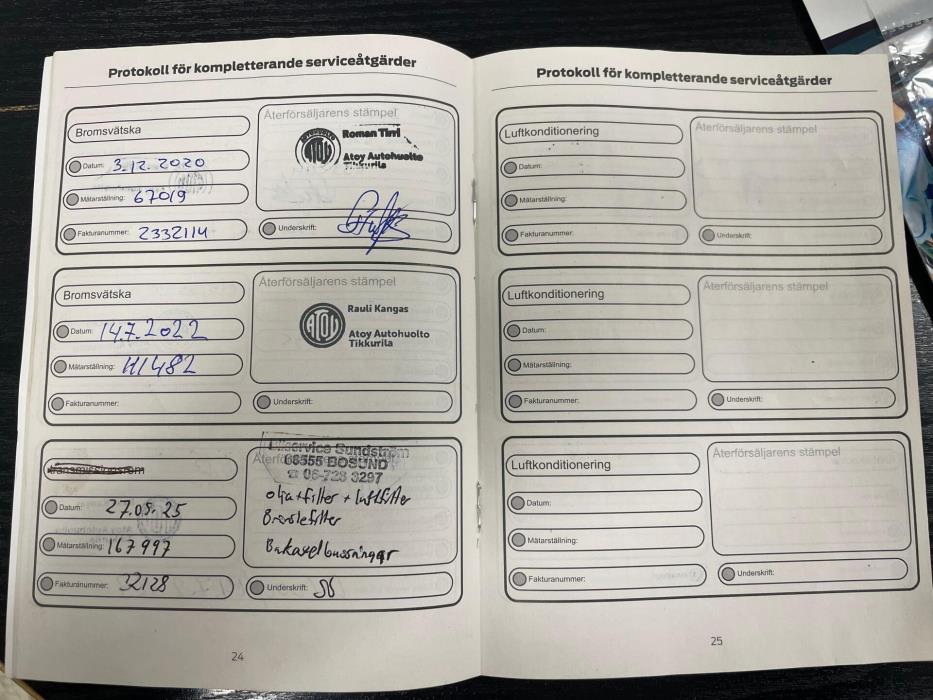 Protokoll för kompletterande serviceåtgärder
Bromsvätska
Återförsäljarens stämpel
ATOY
Roman Tirri
Atoy Autohuolto
Tikkurila
Datum: 3.12.2020
Mätarställning: 67019
Fakturanummer: 2332114
Underskrift:
Bromsvätska
Återförsäljarens stämpel
ATOY
Rauli Kangas
Atoy Autohuolto
Tikkurila
Datum: 14.7.2022
Mätarställning: 111482
Fakturanummer:
Underskrift:
Sundström
68555 BOSUND
☎ 06-728 3297
olja+filter + luftfilter
Bränslefilter
Bakaxelbussningar
Datum: 27.05.25
Mätarställning: 167997
Fakturanummer: 32128
Underskrift:
24
Protokoll för kompletterande serviceåtgärder
Luftkonditionering
Återförsäljarens stämpel
Datum:
Mätarställning:
Fakturanummer:
Underskrift:
Luftkonditionering
Återförsäljarens stämpel
Datum:
Mätarställning:
Fakturanummer:
Underskrift:
Luftkonditionering
Återförsäljarens stämpel
Datum:
Mätarställning:
Fakturanummer:
Underskrift:
25